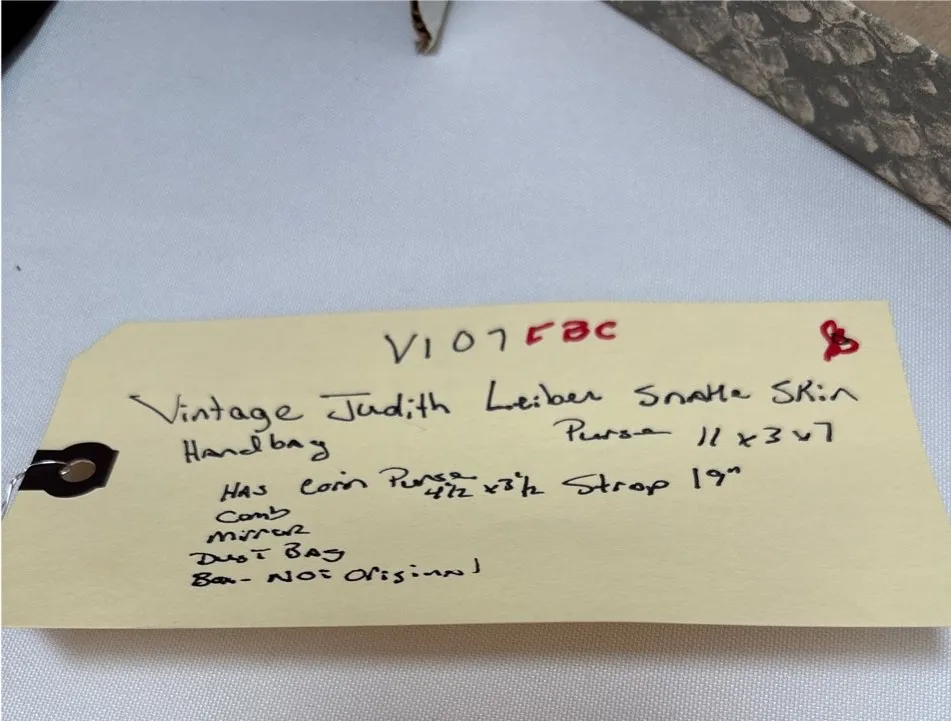 V107 EBC
Vintage Judith Leiber Snake Skin
Handbag Purse 11 x 3 x 7
HAS Coin Purse 4 1/2 x 3 1/2 Strap 19"
Comb
Mirror
Dust Bag
Box - Not Original